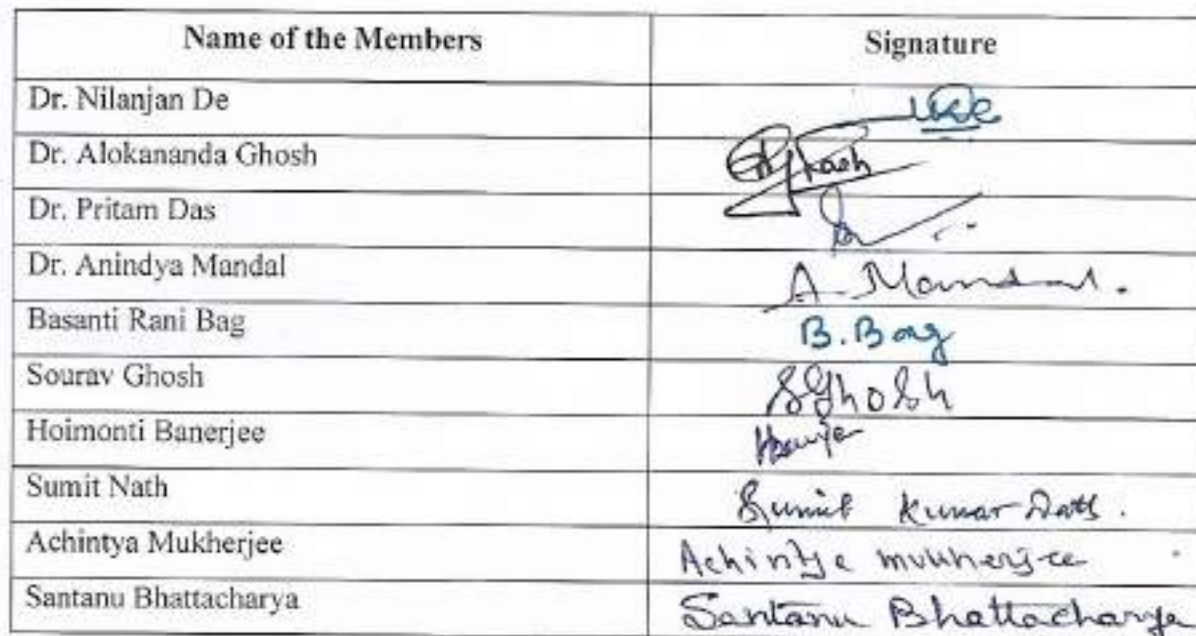 Name of the Members Signature
Dr. Nilanjan De
Dr. Alokananda Ghosh
Dr. Pritam Das
Dr. Anindya Mandal A. Mandal.
Basanti Rani Bag B. Bag
Sourav Ghosh SGhosh
Hoimonti Banerjee
Sumit Nath Sumit Kumar Nath.
Achintya Mukherjee Achintya Mukherjee
Santanu Bhattacharya Santanu Bhattacharya